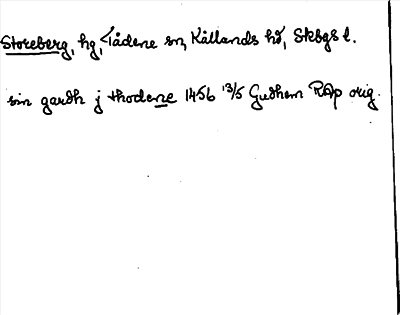 Storeberg, hg, Tådene sn, Kållands hd, Skbgs l.
sin gardh j thodene 1456 13/5 Gudhem RAp orig.